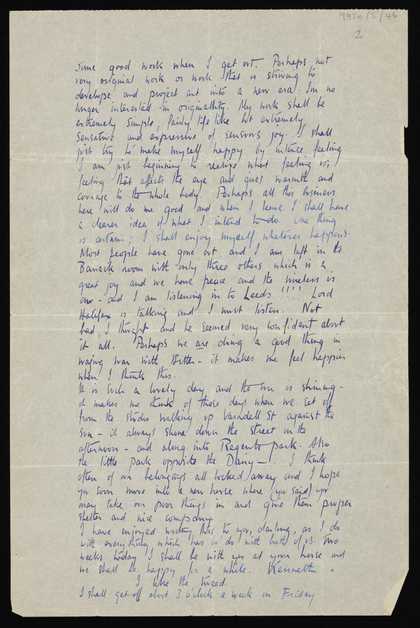 2
some good work when I get out. Perhaps not
very original work or work that is striving to
develope and project out into a new era. I'm no
longer interested in originallity. My work shall be
extremely simple, fairly life like but extremely
sensative and expressive of sensuous joy. I shall
just try to make myself happy by intense feeling
I am just beginning to realise what feeling is,
feeling that affects the eye and gives warmth and
courage to the whole body. Perhaps all this business
here will do me good and when I leave I shall have
a clearer idea of what I intend to do. One thing
is certain; I shall enjoy myself whatever happens.
Most people have gone out and I am left in the
Barrack room with only three others which is a
great joy and we have peace and the wireless is
on. and I am listening in to Leeds !!!! Lord
Halifax is talking and I must listen. Not
bad I thought and he seemed very confident about
it all. Perhaps we are doing a good thing in
waging war with Hitler - it makes me feel happier
when I think this.
It is such a lovely day and the sun is shining -
it makes me think of those days when we set off
from the studio walking up Varndell St against the
sun - it always shone down the street in the
afternoon - and along into Regents park. Also
the little park opposite the Dairy - I think
often of our belongings all locked away and I hope
you soon move into a new house where (you said) you
may take our poor things in and give them proper
shelter and nice company.
I have enjoyed writing this to you, darling, as I do
with everything which has to do with both of us. Two
weeks today I shall be with you at your house and
we shall be happy for a while. Kenneth.
I love the tweed.
I shall get off about 3 o'clock a week on Friday